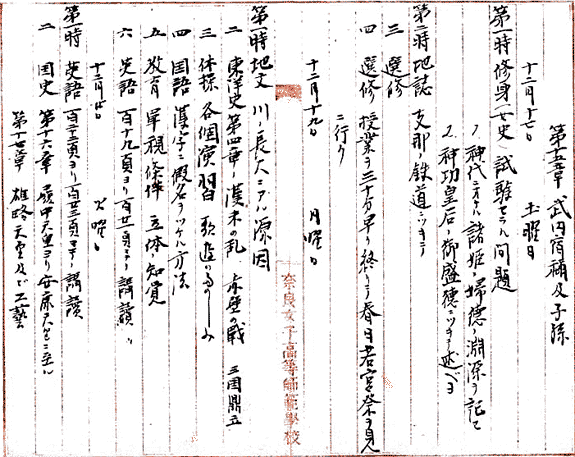 第十五章 武内宿禰及子孫
十二月十七日 土曜日
第一時 修身(女史)試験セラル問題
1. 神代ニ於ケル諸姫ノ婦徳ノ淵源ヲ記セ
2. 神功皇后ノ御盛徳ニツキテ述ベヨ
第二時 地誌 支那ノ鉄道ニツキテ
三 選修
四 選修 授業ヲ三十分早ク終リテ春日若宮祭ヲ見
ニ行ク
十二月十九日 月曜日
第一時 地文 川ノ長久ニアル源因
二 東洋史 第四章 漢末ノ乱 赤壁ノ戦 三国鼎立
三 体操 各個演習
四 国語 漢字ニ假名ヲツケル方法
五 教育 単視ノ條件 立体ノ知覚
六 英語 百十九頁ヨリ百廿一頁マデ講読
十二月廿日 火曜日
第一時 英語 百廿一頁ヨリ百廿三頁マデ講読
二 国史 第十六章 履中天皇ヨリ安康天皇ニ至ル
第十七章 雄略天皇及ビ工藝
奈良女子高等師範學校